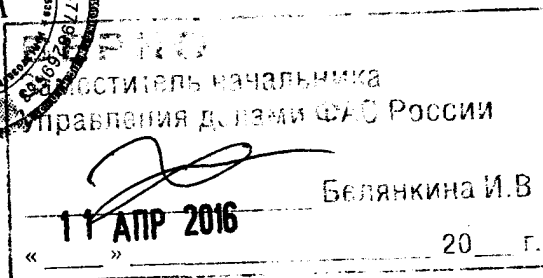 ВЕРНО
Заместитель начальника
Управления делами ФАС России
Белянкина И.В
11 АПР 2016
« ___ » ______ 20___ г.